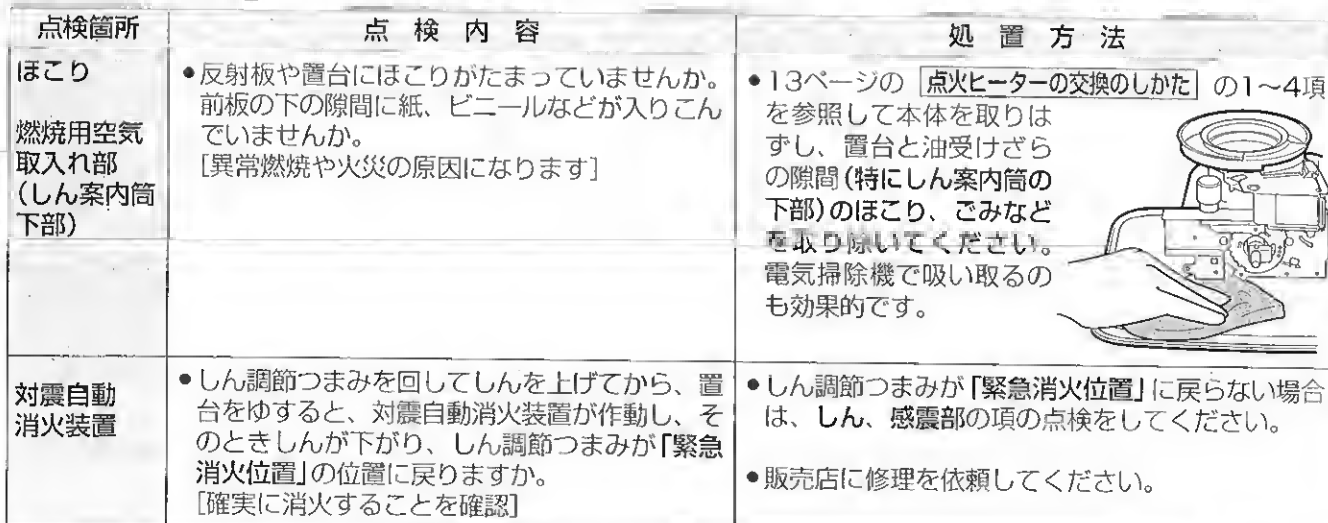 点検箇所
点検内容
処置方法
ほこり
燃焼用空気
取入れ部
(しん案内筒
下部)
●反射板や置台にほこりがたまっていませんか。
前板の下の隙間に紙、ビニールなどが入りこん
でいませんか。
[異常燃焼や火災の原因になります]
●13ページの 点火ヒーターの交換のしかた の1~4項
を参照して本体を取りは
ずし、置台と油受けざら
の隙間(特にしん案内筒の
下部)のほこり、ごみなど
を取り除いてください。
電気掃除機で吸い取るの
も効果的です。
対震自動
消火装置
●しん調節つまみを回してしんを上げてから、置
台をゆすると、対震自動消火装置が作動し、そ
のときしんが下がり、しん調節つまみが「緊急
消火位置」の位置に戻りますか。
[確実に消火することを確認]
●しん調節つまみが「緊急消火位置」に戻らない場合
は、しん、感震部の項の点検をしてください。
●販売店に修理を依頼してください。